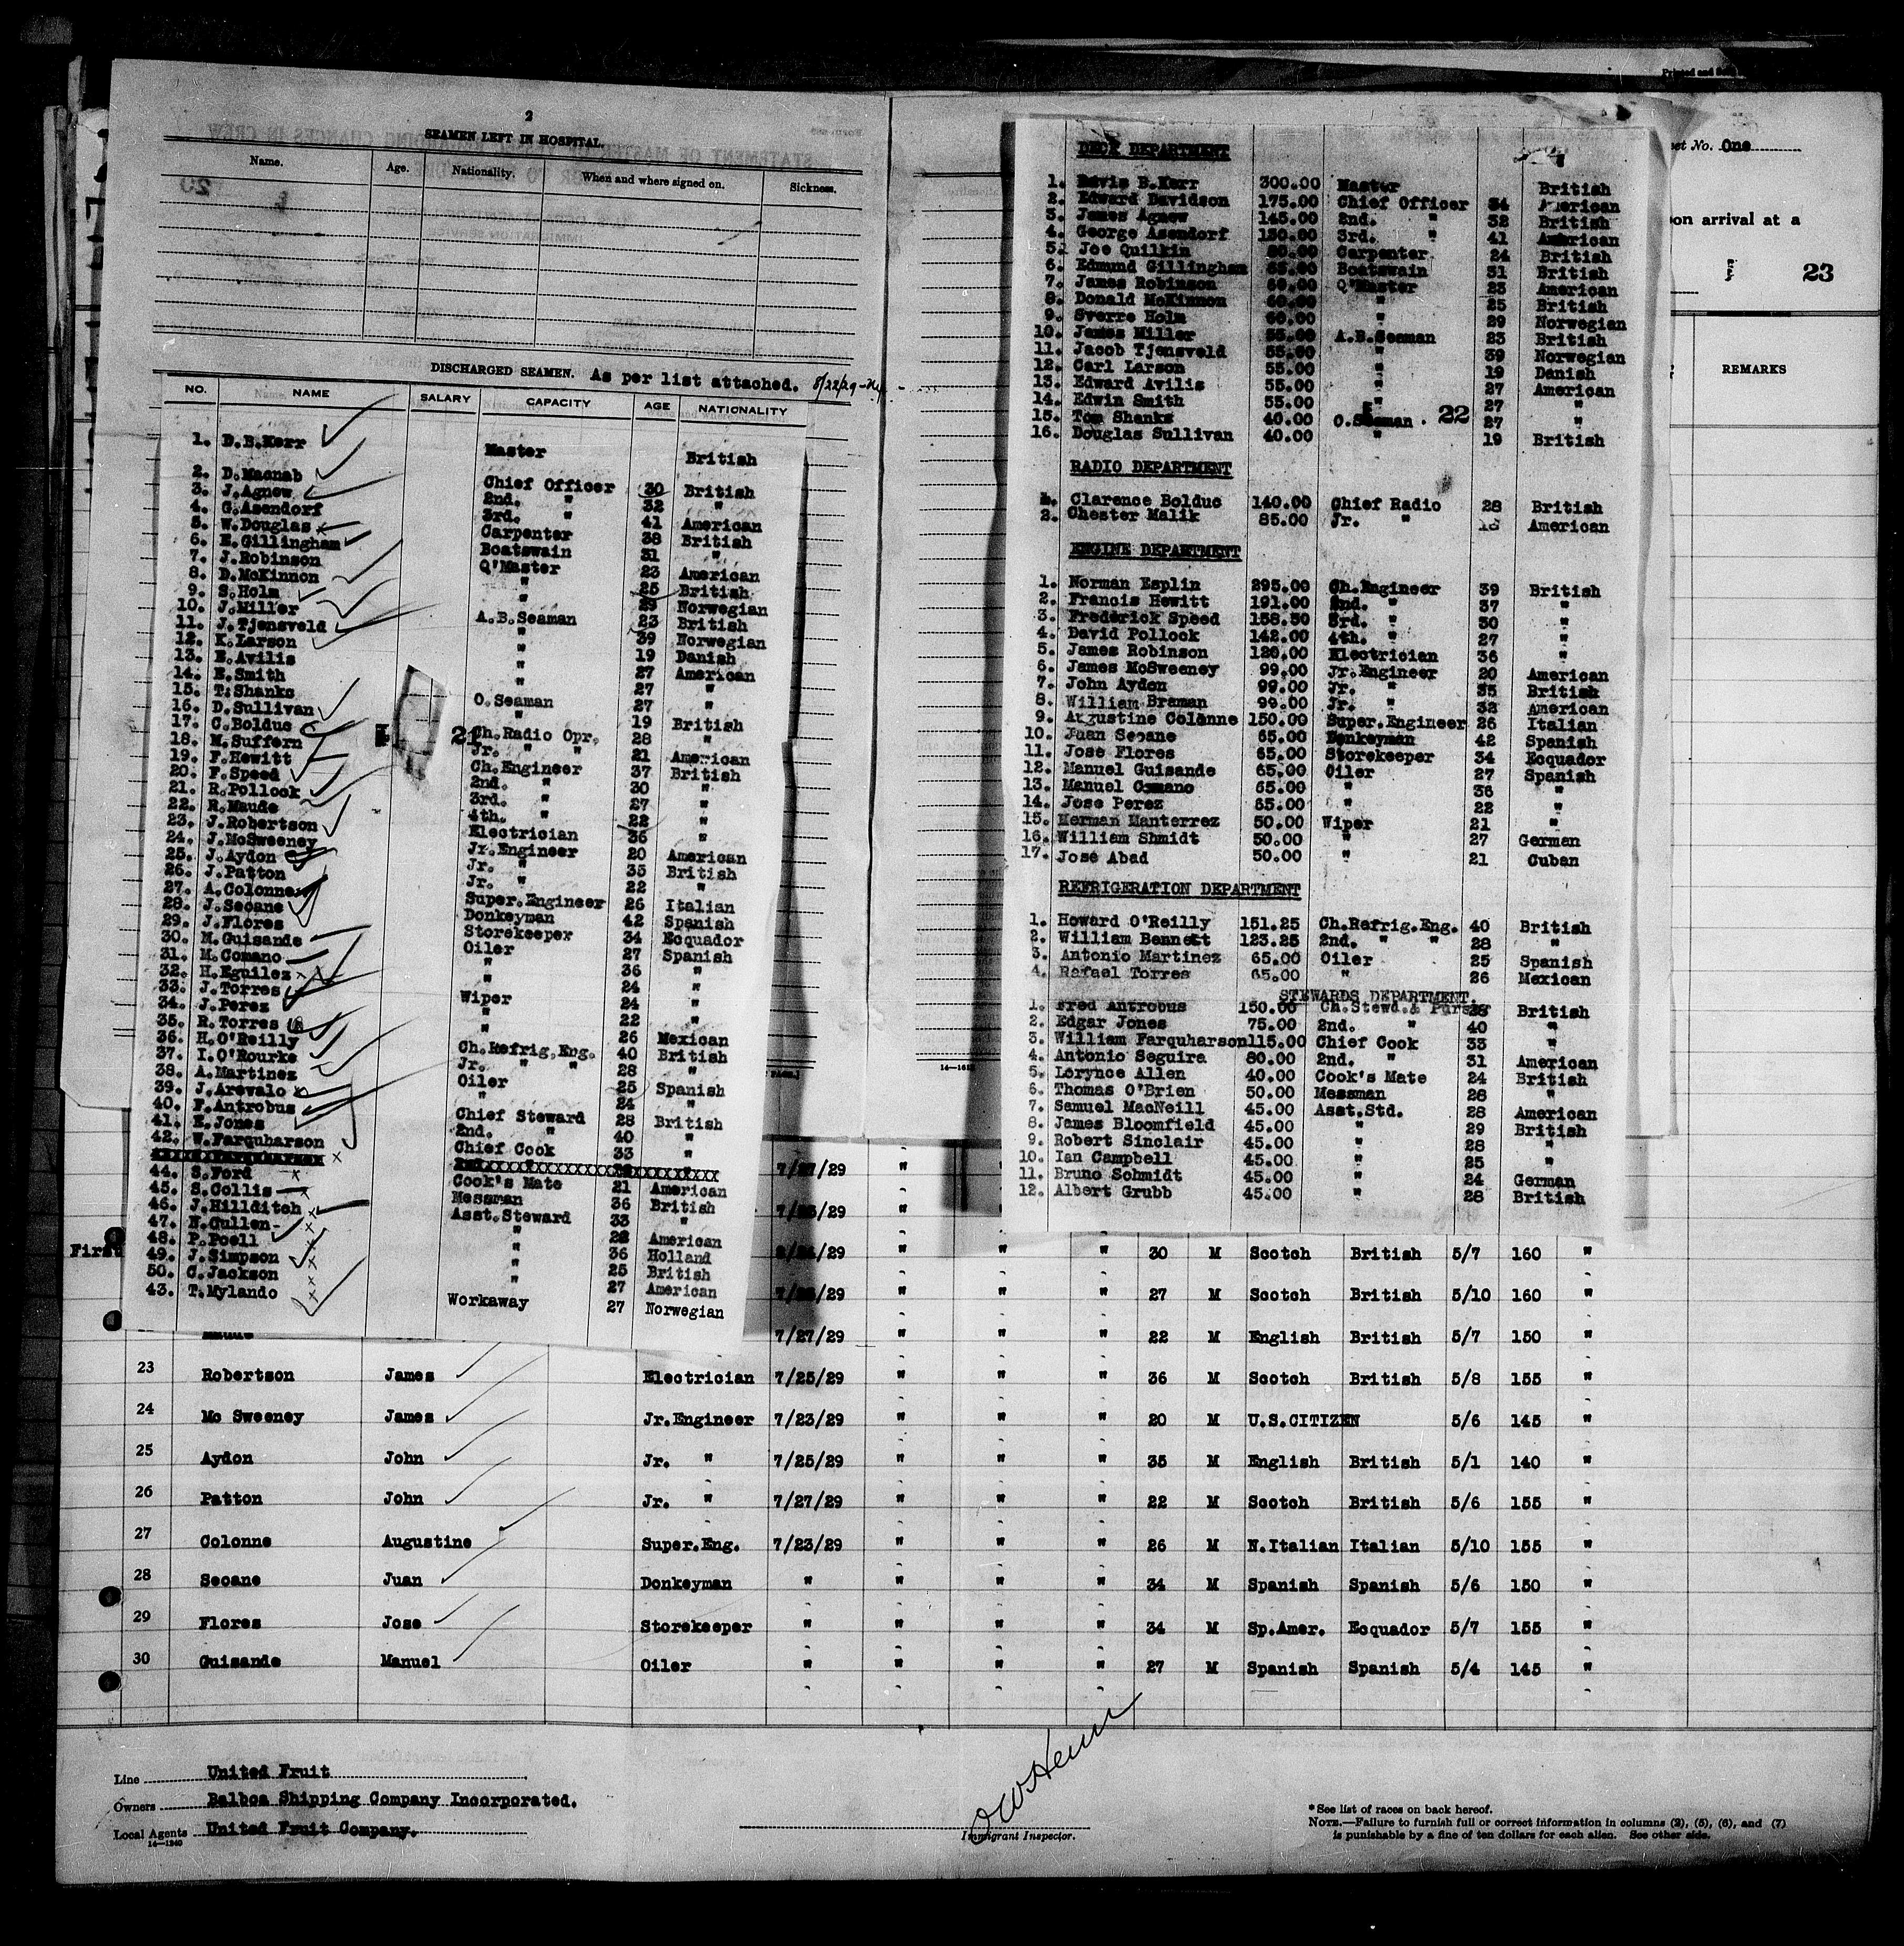 2
SEAMEN LEFT IN HOSPITAL.
Name. Age. Nationality. When and where signed on. Sickness.
DISCHARGED SEAMEN. As per list attached. 8/22/29
NO. NAME SALARY CAPACITY AGE NATIONALITY
1. D.B.Kerr Master British
2. D.Macnab Chief Officer 30 British
3. J.Agnew 2nd. " 32 "
4. G.Asendorf 3rd. " 41 American
5. W.Douglas Carpenter 38 British
6. E.Gillingham Boatswain 31 "
7. J.Robinson Q'Master 23 American
8. D.McKinnon " 25 British
9. S.Holm " 29 Norwegian
10. J.Miller A.B.Seaman 23 British
11. J.Tjensveld " 39 Norwegian
12. K.Larson " 19 Danish
13. E.Avilis " 27 American
14. E.Smith " 27 "
15. T.Shanks O.Seaman 27 "
16. D.Sullivan " 19 British
17. C.Bolduc Ch.Radio Opr. 28 "
18. M.Suffern Jr. " " 21 American
19. F.Hewitt Ch.Engineer 37 British
20. F.Speed 2nd. " 30 "
21. R.Pollock 3rd. " 27 "
22. R.Maude 4th. " 22 "
23. J.Robertson Electrician 36 "
24. J.McSweeney Jr.Engineer 20 American
25. J.Aydon Jr. " 35 British
26. J.Patton Jr. " 22 "
27. A.Colonne Super.Engineer 26 Italian
28. J.Seoane Donkeyman 42 Spanish
29. J.Flores Storekeeper 34 Ecquador
30. M.Guisande Oiler 27 Spanish
31. M.Comano " 36 "
32. H.Eguilez " 24 "
33. J.Torres Wiper 24 "
34. J.Perez " 22 "
35. R.Torres " 26 Mexican
36. H.O'Reilly Ch.Refrig.Eng. 40 British
37. I.O'Rourke Jr. " " 28 "
38. A.Martinez Oiler 25 Spanish
39. J.Arevalo " 24 "
40. F.Antrobus Chief Steward 28 British
41. E.Jones 2nd. " 40 "
42. W.Farquharson Chief Cook 33 "
44. S.Ford Cook's Mate 21 American
45. S.Collis Messman 36 British
46. J.Hillditch Asst.Steward 33 "
47. N.Cullen " 22 American
48. P.Poell " 36 Holland
49. J.Simpson " 25 British
50. C.Jackson " 27 American
43. T.Mylando Workaway 27 Norwegian
21
DECK DEPARTMENT
1. Davis B.Kerr 300.00 Master British
2. Edward Davidson 175.00 Chief Officer 34 American
3. James Agnew 145.00 2nd. " 32 British
4. George Asendorf 130.00 3rd. " 41 American
5. Joe Quilkin Carpenter 24 British
6. Edmund Gillingham 65.00 Boatswain 31 British
7. James Robinson 60.00 Q'Master 23 American
8. Donald McKinnon 60.00 " 25 British
9. Sverre Holm 60.00 " 29 Norwegian
10. James Miller 55.00 A.B.Seaman 23 British
11. Jacob Tjensveld 55.00 " 39 Norwegian
12. Carl Larson 55.00 " 19 Danish
13. Edward Avilis 55.00 " 27 American
14. Edwin Smith 55.00 " 27 "
15. Tom Shanks 40.00 O.Seaman 27 "
16. Douglas Sullivan 40.00 " 19 British
22
RADIO DEPARTMENT
1. Clarence Bolduc 140.00 Chief Radio 28 British
2. Chester Malik 85.00 Jr. " 18 American
ENGINE DEPARTMENT
1. Norman Esplin 295.00 Ch.Engineer 39 British
2. Francis Hewitt 191.00 2nd. " 37 "
3. Frederick Speed 158.50 3rd. " 30 "
4. David Pollock 142.00 4th. " 27 "
5. James Robinson 120.00 Electrician 36 "
6. James McSweeney 99.00 Jr.Engineer 20 American
7. John Aydon 99.00 Jr. " 35 British
8. William Braman 99.00 Jr. " 32 American
9. Augustine Colonne 150.00 Super.Engineer 26 Italian
10. Juan Seoane 65.00 Donkeyman 42 Spanish
11. Jose Flores 65.00 Storekeeper 34 Ecquador
12. Manuel Guisande 65.00 Oiler 27 Spanish
13. Manuel Comano 65.00 " 36 "
14. Jose Perez 65.00 " 22 "
15. Herman Manterrez 50.00 Wiper 21 "
16. William Shmidt 50.00 " 27 German
17. Jose Abad 50.00 " 21 Cuban
REFRIGERATION DEPARTMENT
1. Howard O'Reilly 151.25 Ch.Refrig.Eng. 40 British
2. William Bennett 123.25 2nd. " " 28 "
3. Antonio Martinez 65.00 Oiler 25 Spanish
4. Rafael Torres 65.00 " 26 Mexican
STEWARDS DEPARTMENT.
1. Fred Antrobus 150.00 Ch.Stewd.& Purser British
2. Edgar Jones 75.00 2nd. " 40 "
3. William Farquharson 115.00 Chief Cook 33 "
4. Antonio Seguira 80.00 2nd. " 31 American
5. Lorynce Allen 40.00 Cook's Mate 24 British
6. Thomas O'Brien 50.00 Messman 28 "
7. Samuel MacNeill 45.00 Asst.Std. 28 American
8. James Bloomfield 45.00 " 29 British
9. Robert Sinclair 45.00 " 28 "
10. Ian Campbell 45.00 " 25 "
11. Bruno Schmidt 45.00 " 24 German
12. Albert Grubb 45.00 " 28 British
Sheet No. One
on arrival at a
23
REMARKS
7/27/29 "
First 30 M Scotch British 5/7 160 "
27 M Scotch British 5/10 160 "
7/27/29 " " " 22 M English British 5/7 150 "
23 Robertson James Electrician 7/25/29 " " " 36 M Scotch British 5/8 155 "
24 Mc Sweeney James Jr.Engineer 7/23/29 " " " 20 M U.S.CITIZEN 5/6 145 "
25 Aydon John Jr. " 7/25/29 " " " 35 M English British 5/1 140 "
26 Patton John Jr. " 7/27/29 " " " 22 M Scotch British 5/6 155 "
27 Colonne Augustine Super.Eng. 7/23/29 " " " 26 M N.Italian Italian 5/10 155 "
28 Seoane Juan Donkeyman " " " " 34 M Spanish Spanish 5/6 150 "
29 Flores Jose Storekeeper " " " " 34 M Sp.Amer. Ecquador 5/7 155 "
30 Guisande Manuel Oiler " " " " 27 M Spanish Spanish 5/4 145 "
Line United Fruit
Owners Balboa Shipping Company Incorporated.
Local Agents United Fruit Company.
14—1240
Immigrant Inspector.
* See list of races on back hereof.
NOTE.—Failure to furnish full or correct information in columns (2), (5), (6), and (7)
is punishable by a fine of ten dollars for each alien. See other side.